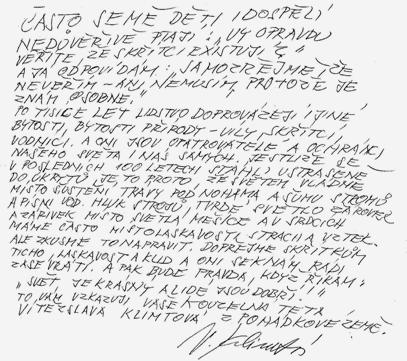 ČASTO SE MĚ DĚTI I DOSPĚLÍ
NEDŮVĚŘIVĚ PTAJÍ: „VY OPRAVDU
VĚŘÍTE, ŽE SKŘÍTCI EXISTUJÍ?“
A JÁ ODPOVÍDÁM: „SAMOZŘEJMĚ, ŽE
NEVĚŘÍM – ANI NEMUSÍM, PROTOŽE JE
ZNÁM OSOBNĚ.“
PO TISÍCE LET LIDSTVO DOPROVÁZEJÍ I JINÉ
BYTOSTI, BYTOSTI PŘÍRODY – VÍLY, SKŘÍTCI,
VODNÍCI. A ONI JSOU OPATROVATELÉ A OCHRÁNCI
NAŠEHO SVĚTA I NÁS SAMÝCH. JESTLIŽE SE
V POSLEDNÍCH 100 LETECH STÁHLI USTRAŠENĚ
DO ÚKRYTŮ, JE TO PROTO, ŽE SVĚTEM VLÁDNE
MÍSTO ŠUSTĚNÍ TRÁVY POD NOHAMA A ŠUMU STROMŮ
A PÍSNÍ VOD. HLUK STROJŮ, TVRDÉ SVĚTLO ŽÁROVEK
A ZÁŘIVEK MÍSTO SVĚTLA MĚSÍCE A V SRDCÍCH
MÁME ČASTO MÍSTO LÁSKAVOSTI STRACH A VZTEK.
ALE ZKUSME TO NAPRAVIT. DOPŘEJME SKŘÍTKŮM
TICHO, LÁSKAVOST A KLID A ONI SE K NÁM RÁDI
ZASE VRÁTÍ. A PAK BUDE PRAVDA, KDYŽ ŘÍKÁM:
„SVĚT JE KRÁSNÝ A LIDÉ JSOU DOBŘÍ!“
TO VÁM VZKAZUJE VAŠE KOUZELNÁ TETA
VÍTĚZSLAVA KLIMTOVÁ Z POHÁDKOVÉ ZEMĚ.
V. Klimtová